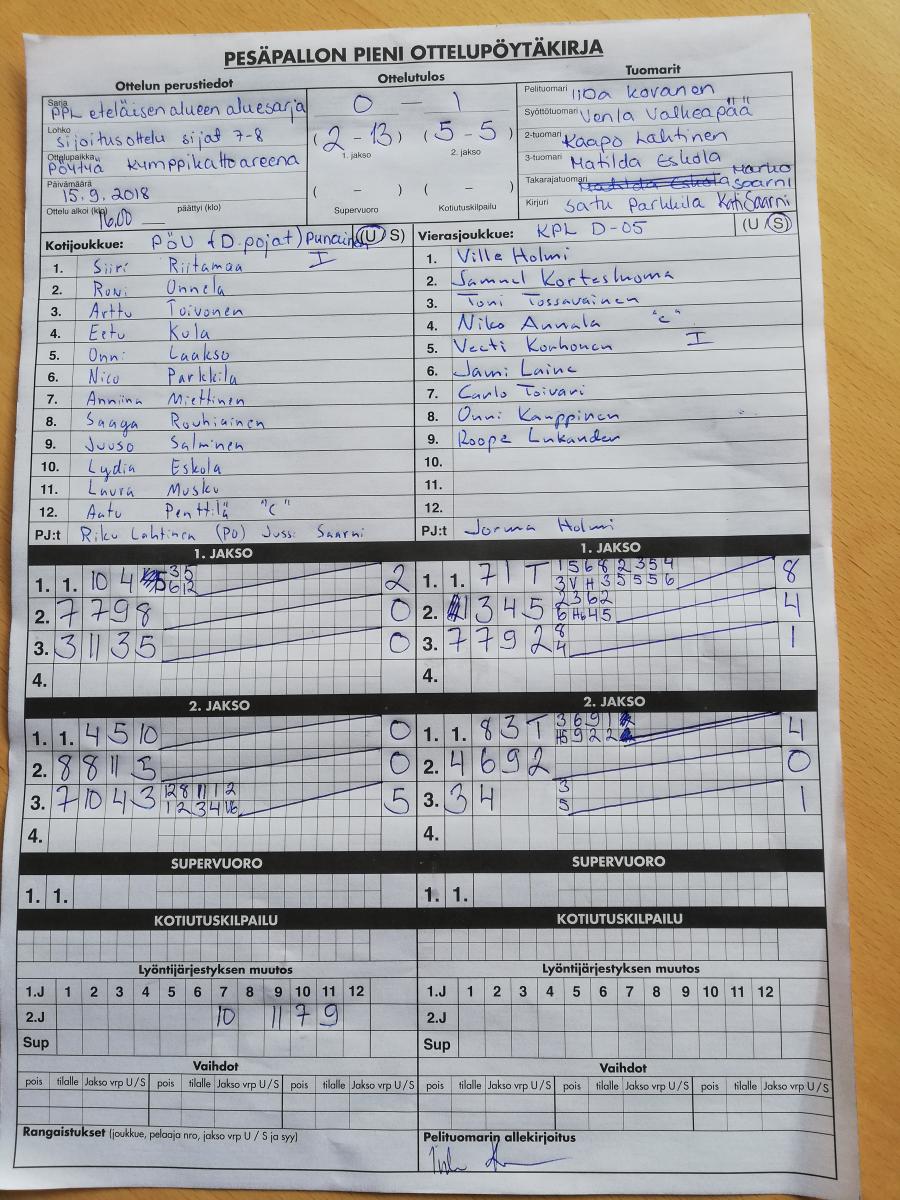 PESÄPALLON PIENI OTTELUPÖYTÄKIRJA
Ottelun perustiedot
Sarja PPL eteläisen alueen aluesarja
Lohko sijoitusottelu sijat 7-8
Ottelupaikka Pöytyä Kymppikattoareena
Päivämäärä 15.9.2018
Ottelu alkoi (klo) 16.00 päättyi (klo)
Ottelutulos
0 – 1
(2 - 13) (5 - 5)
1. jakso 2. jakso
( - ) ( - )
Supervuoro Kotiutuskilpailu
Tuomarit
Pelituomari Iida Kovanen
Syöttötuomari Venla Valkeapää
2-tuomari Kaapo Lahtinen
3-tuomari Matilda Eskola
Takarajatuomari Marko Saarni
Kirjuri Satu Parkkila Kati Saarni
Kotijoukkue: PöU (D pojat) Punainen (U S)
1. Siiri Riitamaa I
2. Roni Onnela
3. Arttu Toivonen
4. Eetu Kula
5. Onni Laakso
6. Nico Parkkila
7. Anniina Miettinen
8. Saaga Rouhiainen
9. Juuso Salminen
10. Lydia Eskola
11. Laura Musku
12. Aatu Penttilä "C"
PJ:t Riku Lahtinen (PO) Jussi Saarni
Vierasjoukkue: KPL D-05 (U S)
1. Ville Holmi
2. Samuel Kortesluoma
3. Toni Tossavainen
4. Niko Annala "C"
5. Veeti Korhonen I
6. Jami Laine
7. Carlo Toivari
8. Onni Kauppinen
9. Roope Lukander
10.
11.
12.
PJ:t Jorma Holmi
1. JAKSO
1. 1. 10 4 3 5 6 12 2
2. 7 7 9 8 0
3. 3 11 3 5 0
4.
1. JAKSO
1. 1. 7 1 T 1 5 6 8 2 3 5 4 8
3 V H 3 5 5 5 6
2. 3 4 5 2 3 6 2 4
6 H6 4 5
3. 7 7 9 2 8 1
4
4.
2. JAKSO
1. 1. 4 5 10 0
2. 8 8 11 5 0
3. 7 10 4 3 12 8 11 1 2 5
1 2 3 4 V6
4.
2. JAKSO
1. 1. 8 3 T 3 6 9 1 4
H5 9 2 2
2. 4 6 9 2 0
3. 3 4 3 1
5
4.
SUPERVUORO
1. 1.
SUPERVUORO
1. 1.
KOTIUTUSKILPAILU
KOTIUTUSKILPAILU
Lyöntijärjestyksen muutos
1.J 1 2 3 4 5 6 7 8 9 10 11 12
2.J 10 11 7 9
Sup
Lyöntijärjestyksen muutos
1.J 1 2 3 4 5 6 7 8 9 10 11 12
2.J
Sup
Vaihdot
pois tilalle Jakso vrp U/S pois tilalle Jakso vrp U/S pois tilalle Jakso vrp U/S
Vaihdot
pois tilalle Jakso vrp U/S pois tilalle Jakso vrp U/S pois tilalle Jakso vrp U/S
Rangaistukset (joukkue, pelaaja nro, jakso vrp U / S ja syy)
Pelituomarin allekirjoitus